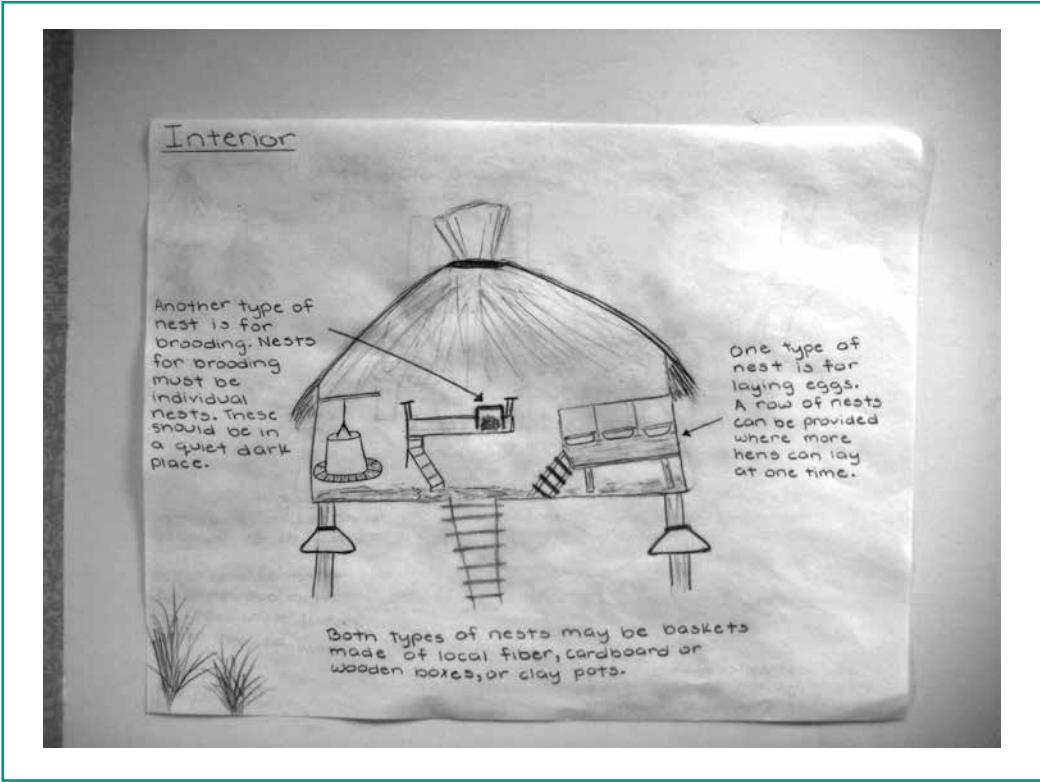 Interior
Another type of
nest is for
brooding. Nests
for brooding
must be
individual
nests. These
should be in
a quiet dark
place.
One type of
nest is for
laying eggs.
A row of nests
can be provided
where more
hens can lay
at one time.
Both types of nests may be baskets
made of local fiber, cardboard or
wooden boxes, or clay pots.